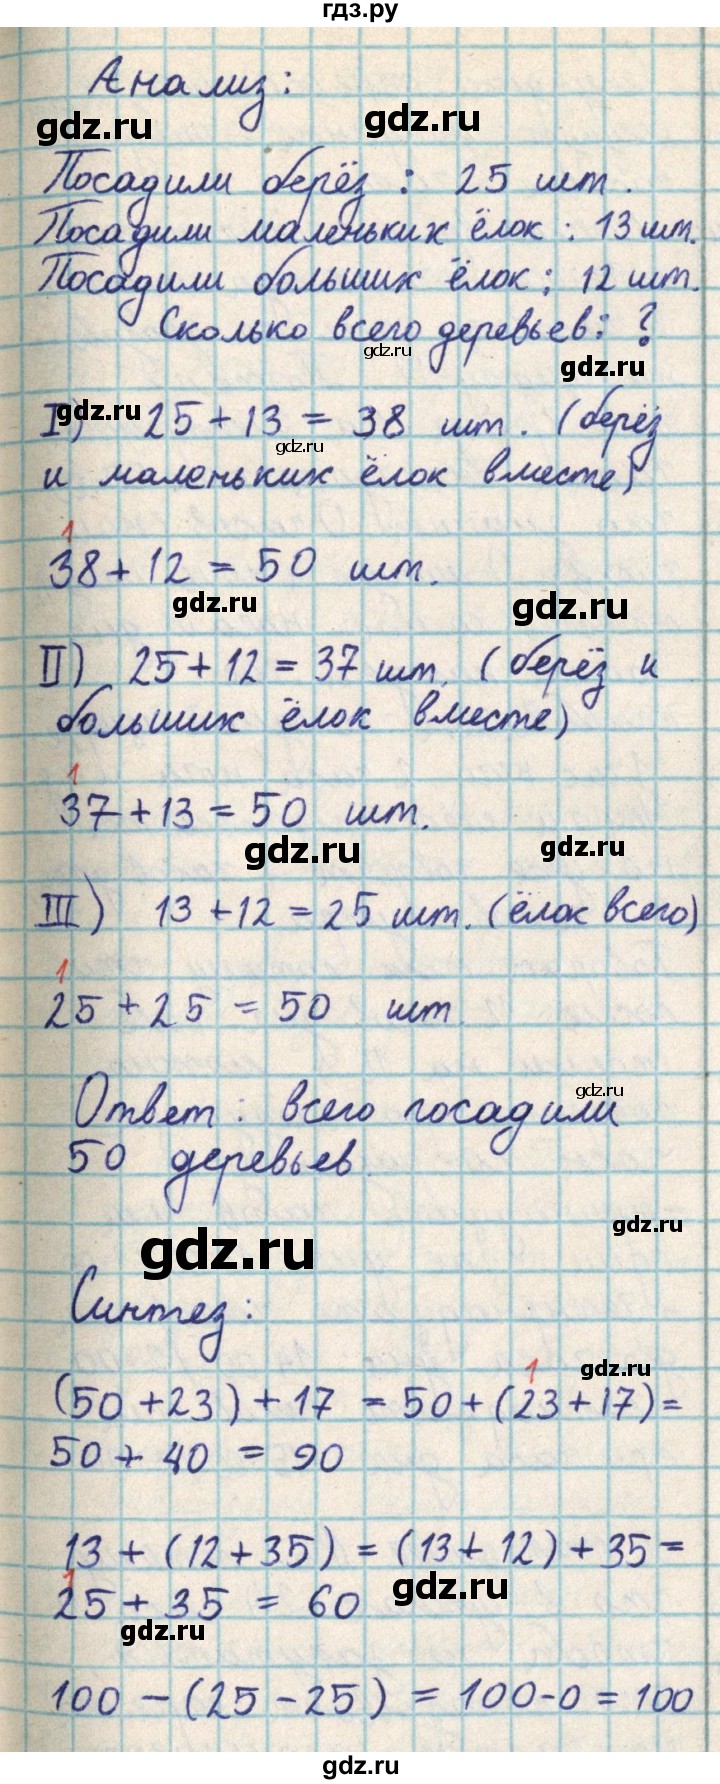 гдз.ру
Анализ:
gdz.ru
gdz.ru
Посадили берёз : 25 шт.
Посадили маленьких ёлок : 13 шт.
Посадили больших ёлок : 12 шт.
Сколько всего деревьев : ?
gdz.ru
gdz.ru
I) 25 + 13 = 38 шт. (берёз
gdz.ru
gdz.ru
и маленьких ёлок вместе)
1
38 + 12 = 50 шт.
gdz.ru
gdz.ru
II) 25 + 12 = 37 шт. (берёз и
больших ёлок вместе)
1
37 + 13 = 50 шт.
gdz.ru
gdz.ru
III) 13 + 12 = 25 шт. (ёлок всего)
1
25 + 25 = 50 шт.
gdz.ru
Ответ : всего посадили
50 деревьев.
gdz.ru
gdz.ru
Синтез :
gdz.ru
1
(50 + 23) + 17 = 50 + (23 + 17) =
50 + 40 = 90
13 + (12 + 35) = (13 + 12) + 35 =
gdz.ru
1
25 + 35 = 60
gdz.ru
100 - (25 - 25) = 100 - 0 = 100
gdz.ru